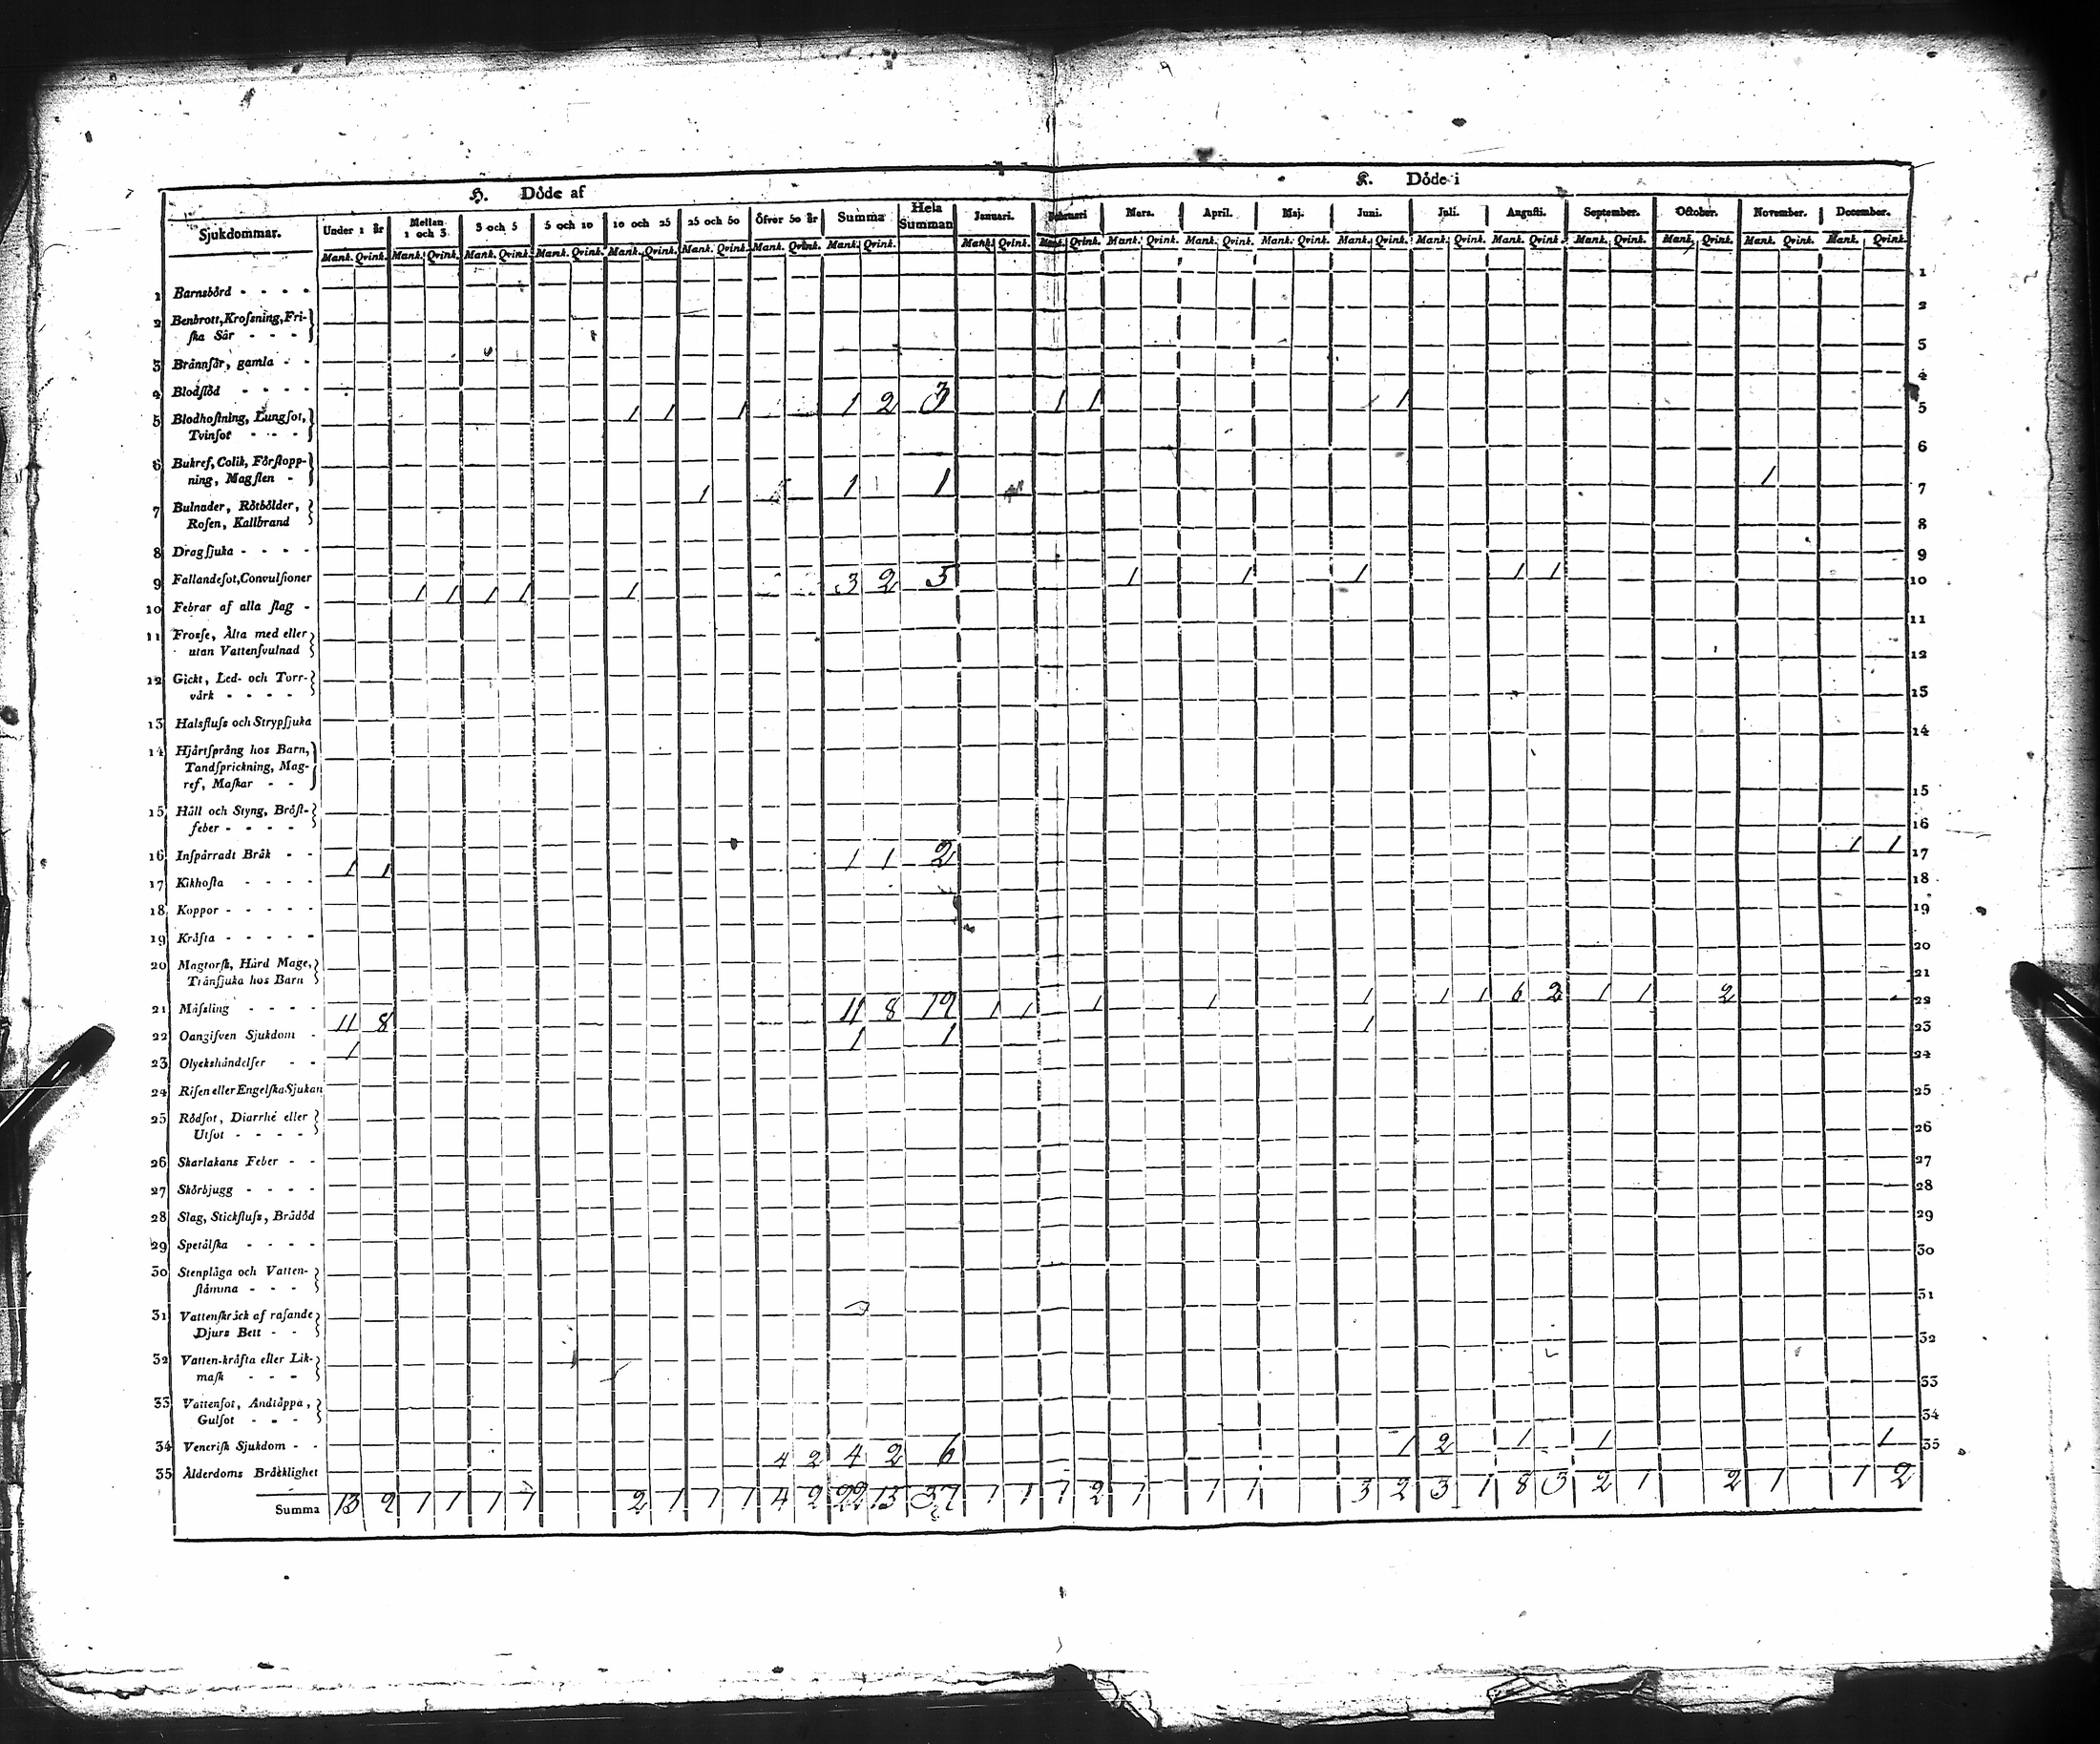 H. Döde af
K. Döde i
Sjukdommar. Under 1 år Mellan 1 och 3 3 och 5 5 och 10 10 och 25 25 och 50 Öfver 50 år Summa Hela Summan Januari. Februari Mars. April. Maj. Juni. Juli. Augusti. September. October. November. December.
Mank. Qvink. Mank. Qvink. Mank. Qvink. Mank. Qvink. Mank. Qvink. Mank. Qvink. Mank. Qvink. Mank. Qvink. Mank. Qvink. Mank. Qvink. Mank. Qvink. Mank. Qvink. Mank. Qvink. Mank. Qvink. Mank. Qvink. Mank. Qvink. Mank. Qvink. Mank. Qvink. Mank. Qvink. Mank. Qvink.
1 Barnsbörd - - - - 1
2 Benbrott, Krosning, Fri-
ſka Sår - - - 2
3 Brännſår, gamla - - 3
4 Blodſlöd - - - - 4
5 Blodhoſtning, Lungſot,
Tvinſot - - - 1 1 1 1 2 3 1 1 1 5
6 Bukref, Colik, Förſtopp-
ning, Magſlen - 6
7 Bulnader, Rötbölder,
Roſen, Kallbrand 1 1 1 1 7
8 Dragſjuka - - - - 8
9 Fallandeſot, Convulſioner 9
10 Febrar af alla ſlag - 1 1 1 1 1 3 2 5 1 1 1 1 1 10
11 Frosſe, Älta med eller
utan Vattenſvulnad 11
12 Gickt, Led- och Torr-
värk - - - - 12
13 Halsfluſs och Strypſjuka 13
14 Hjärtſprång hos Barn,
Tandſprickning, Mag-
ref, Maſkar - - 14
15 Håll och Styng, Bröſt-
feber - - - - 15
16 Inſpärradt Bråk - - 16
17 Kikhoſta - - - - 1 1 1 1 2 1 1 17
18 Koppor - - - - - 18
19 Kräfta - - - - - 19
20 Magtorſk, Hård Mage,
Tränſjuka hos Barn 20
21 Mäſsling - - - - 21
22 Oangifven Sjukdom - 11 8 11 8 19 1 1 1 1 1 1 1 6 2 1 1 2 22
23 Olyckshändelſer - - 1 1 1 1 23
24 Riſen eller Engelſka Sjukan 24
25 Rödſot, Diarrhé eller
Utſot - - - - 25
26 Skarlakans Feber - - 26
27 Skörbjugg - - - - 27
28 Slag, Stickfluſs, Brådöd 28
29 Spetälſka - - - - 29
30 Stenplåga och Vatten-
ſtämma - - - 30
31 Vattenſkräck af raſande
Djurs Bett - - 31
32 Vatten-kräfta eller Lik-
maſk - - - 32
33 Vattenſot, Andtäppa,
Gulſot - - - 33
34 Veneriſk Sjukdom - - 34
35 Ålderdoms Bräcklighet 4 2 4 2 6 1 2 1 1 1 35
Summa 13 9 1 1 1 1 2 1 1 1 4 2 22 15 37 1 1 1 2 1 1 1 3 2 3 1 8 3 2 1 2 1 1 2